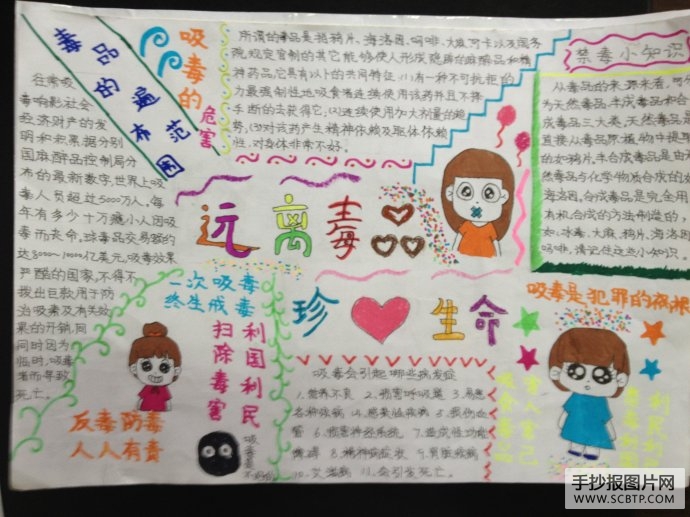 毒品的遍布范围
往常吸
毒响影社会
经济财产的发
明和积累据分别
国麻醉品控制局分
布的最新数字,世界上吸
毒人员超过5000万人,每
年有多少十万瘾小人因吸
毒而丧命。球毒品交易额约
达8000—10000亿美元,吸毒效果
严酷的国家,不得不
拨出巨款用于防
治吸毒及有关效
果的开销,同
同时因为
临时,吸毒
者而导致
死亡。
吸毒的危害
所谓的毒品是指鸦片、海洛因、吗啡、大麻、可卡以及国务
院规定管制的其它能够使人形成瘾癖的麻醉品和精
神药品,它具有以下的共同特征:(1)有一种不可抗拒的
力量强制性地吸食者连续使用该药并且不择
手断的去获得它;(2)连续使用加大剂量的趋
势;(3)对该药产生精神依赖及躯体依赖
性,对身体非常不好。
禁毒小知识
从毒品的来源来看,可分
为天然毒品、半成毒品和合
成毒品三大类。天然毒品是
直接从毒品原植物中提取
的如鸦片,半合成毒品是由天
然毒品与化学物质合成的如
海洛因,合成毒品是完全用
有机合成的方法制造的;
如:冰毒、大麻、鸦片、海洛因
吗啡,请记住这些小知识。
远离毒品
珍生命
一次吸毒
终生戒毒
利国利民
扫除毒害
反毒防毒
人人有责
吸毒
吸毒会引起哪些病发症
1.营养不良 2.损害呼吸道 3.易患
各种疾病 4.感染性疾病 5.损伤血
管 6.损害神经系统 7.造成性功能
障碍 8.精神病症状 9.胃脏疾病
10.艾滋病 11.会引发死亡。
吸毒是犯罪的祸根
害人害己
吸食毒品
利民利国
手抄报图片网
WWW.SCBTP.COM